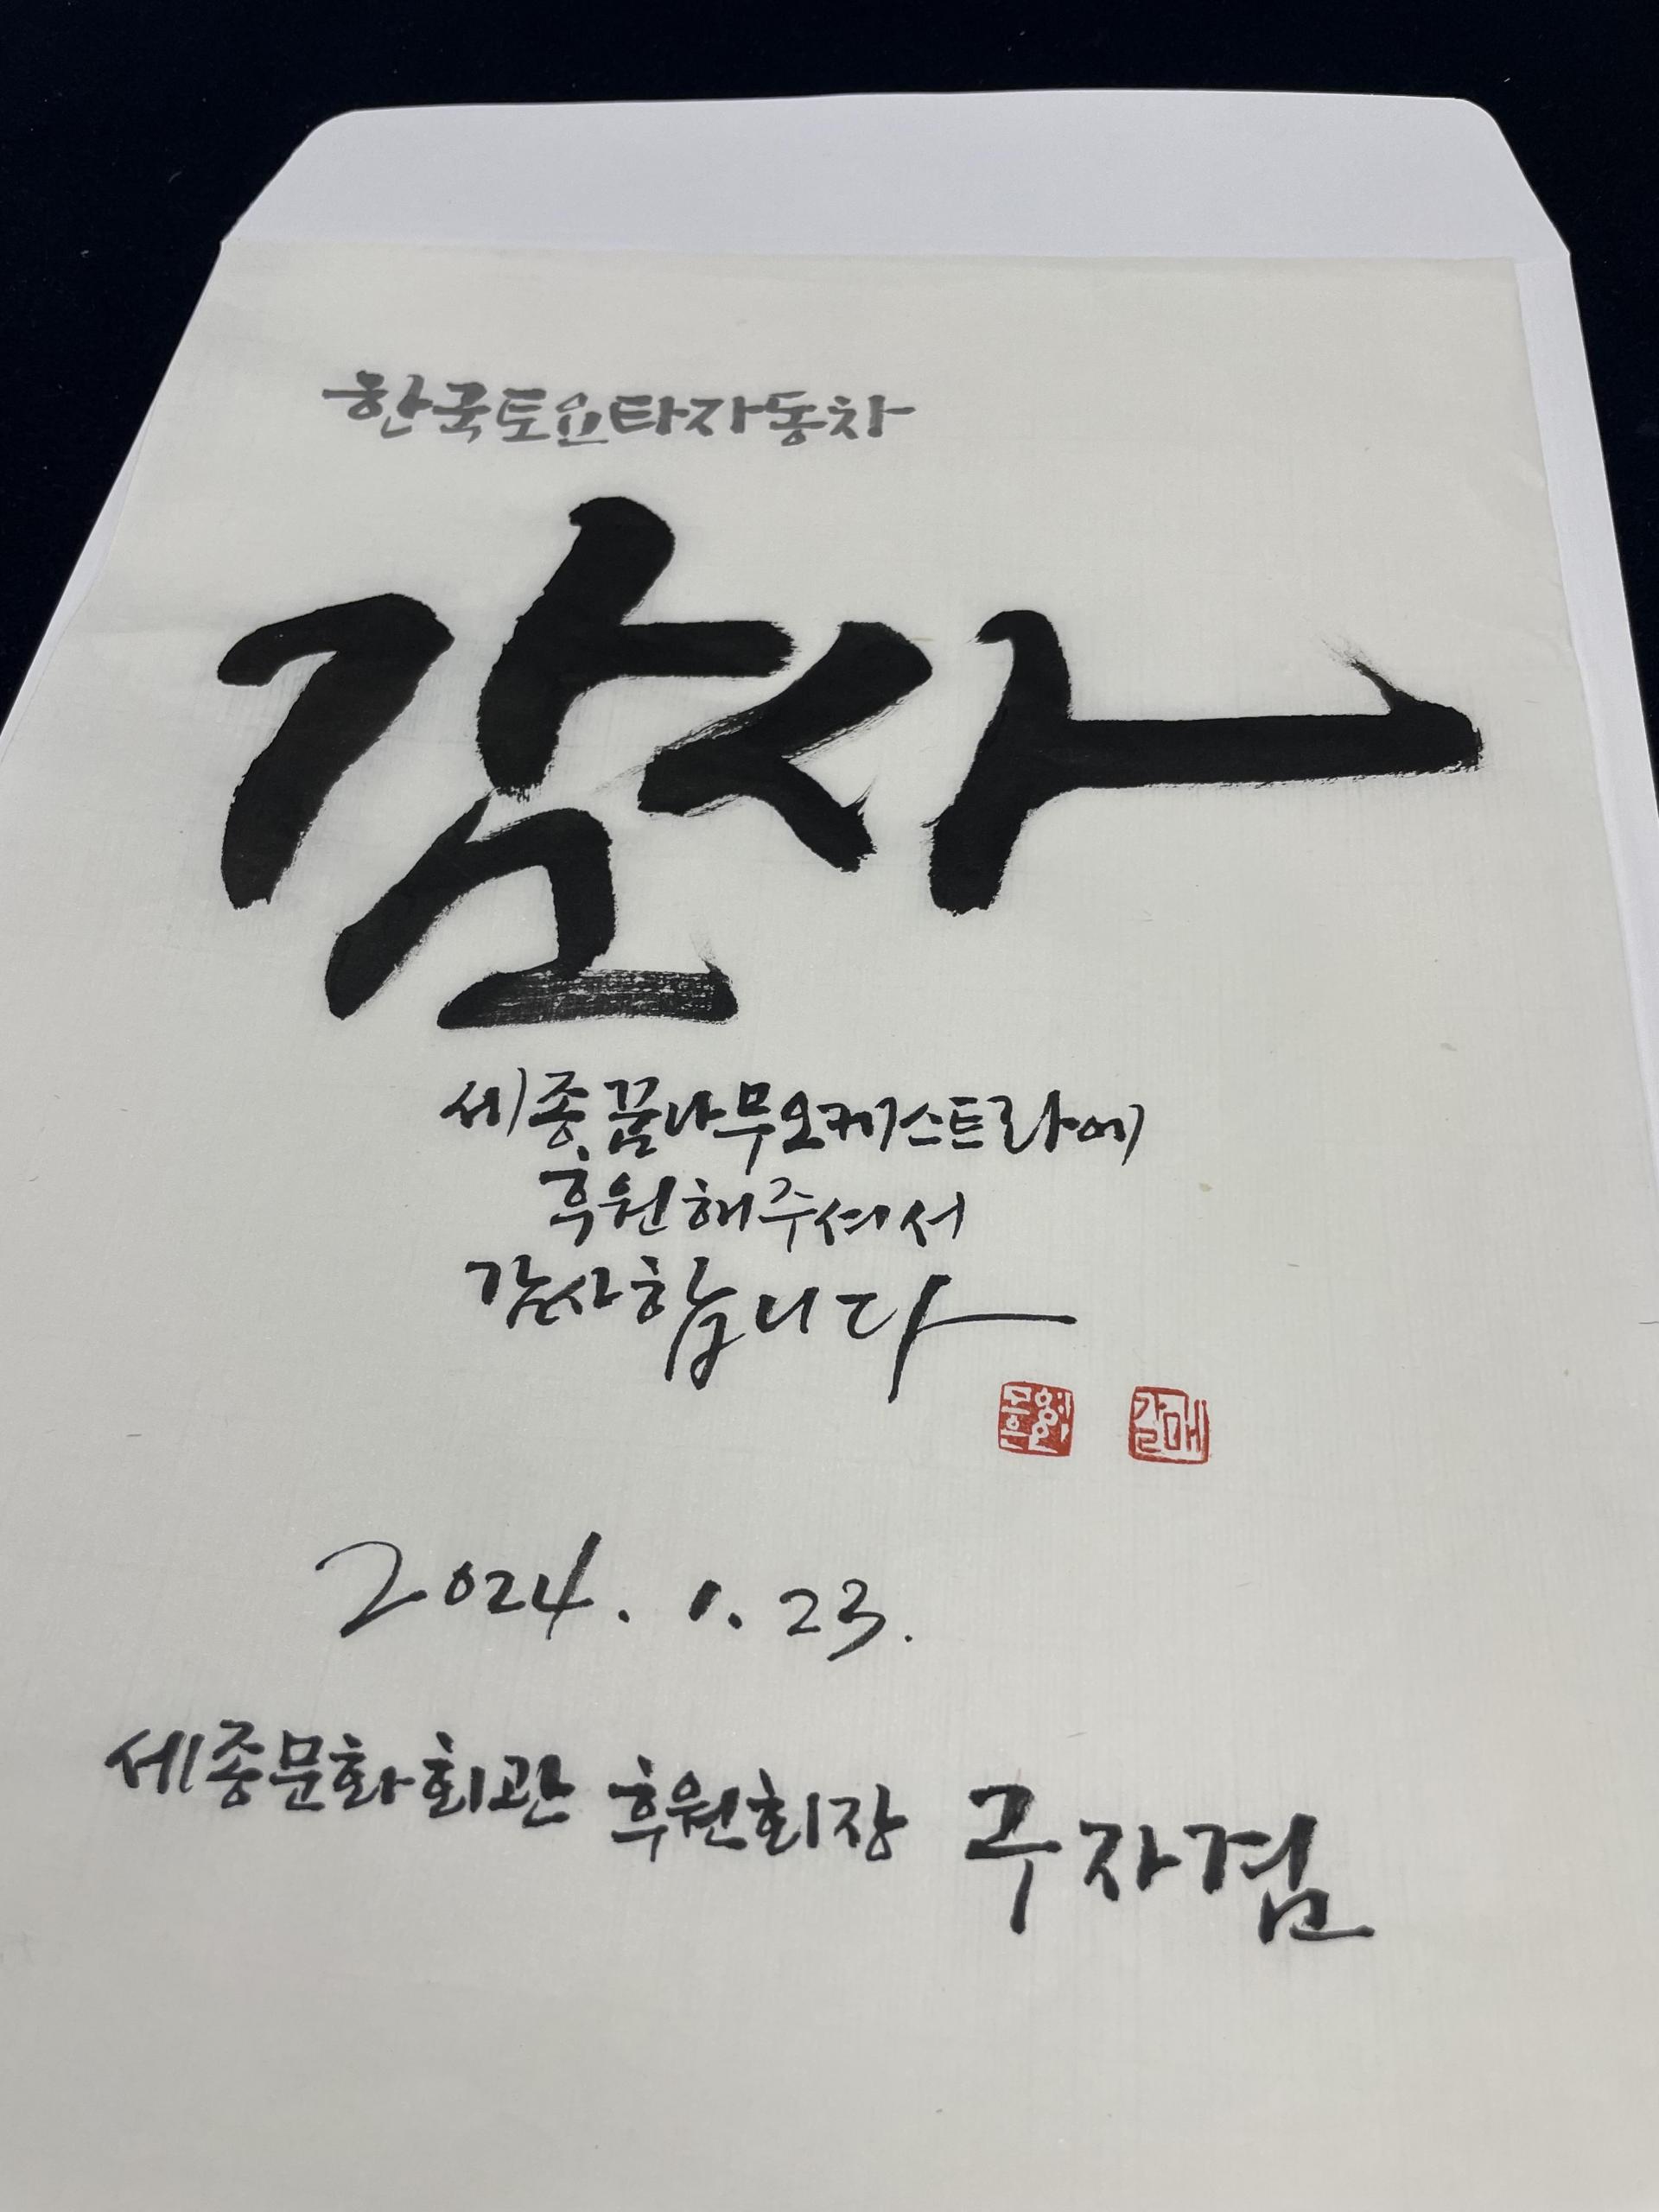 한국토요타자동차
감사
세종꿈나무오케스트라에
후원해주셔서
감사합니다
갈매
2024. 1. 23.
세종문화회관 후원회장 구자겸